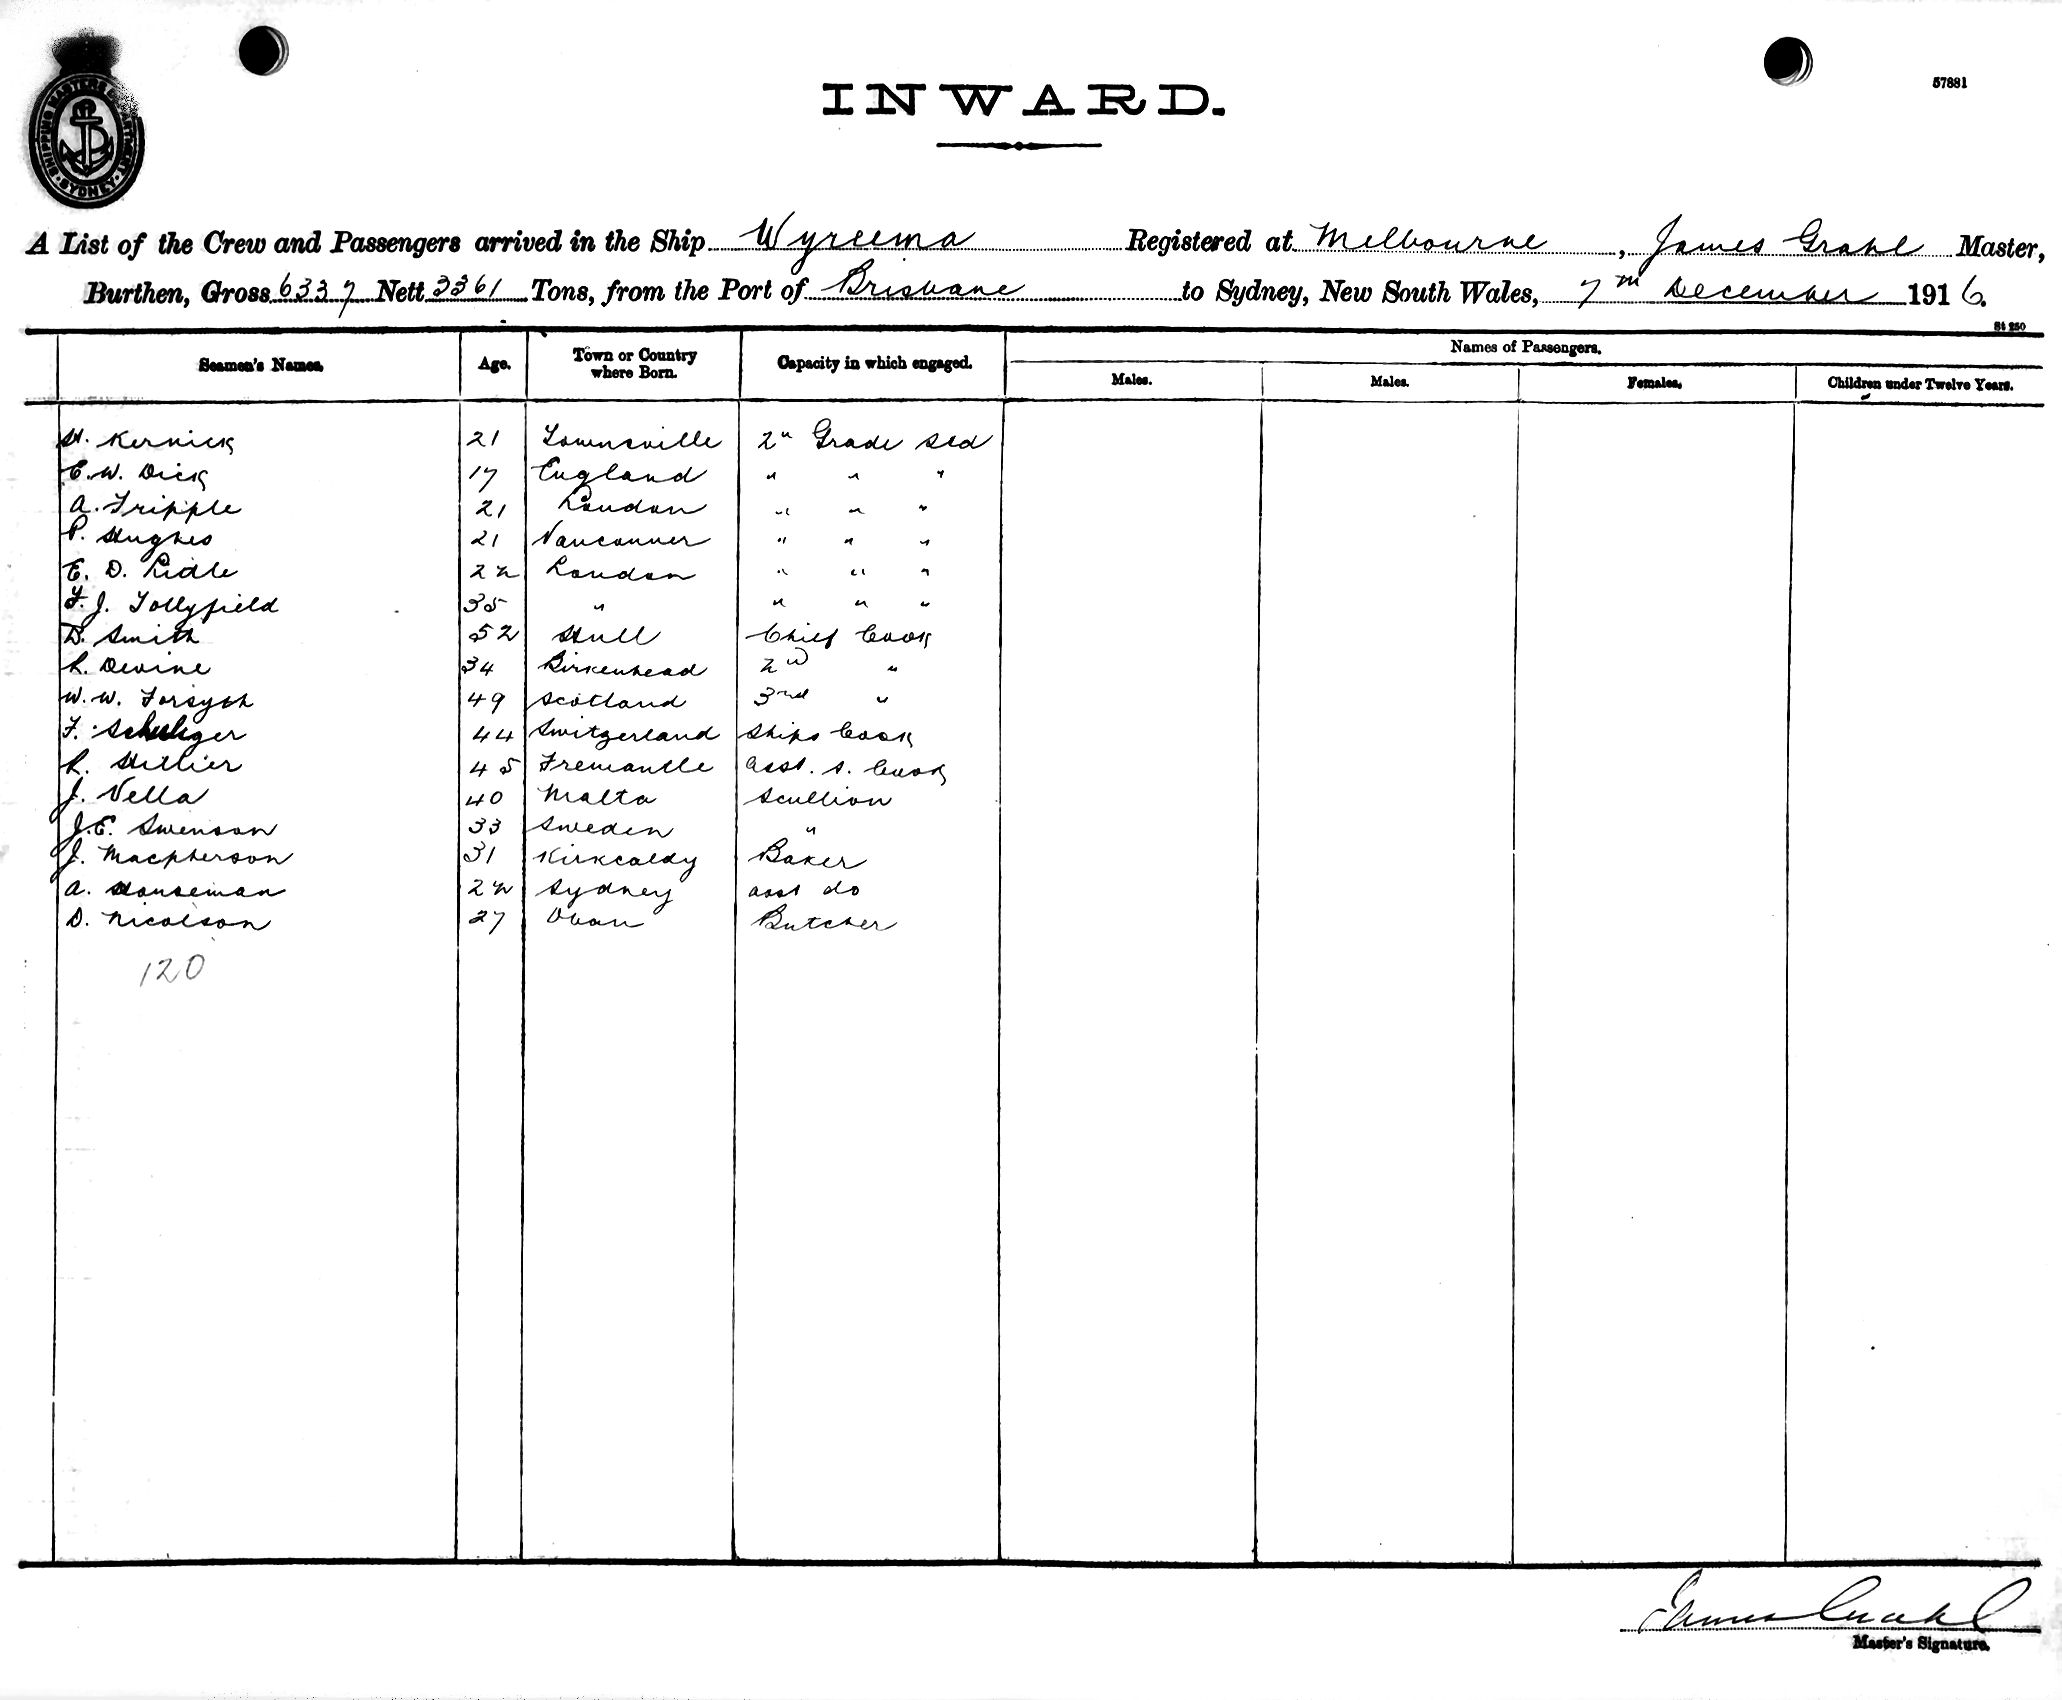 SHIPPING MASTERS DEPARTMENT · SYDNEY ·
57881
INWARD.
A List of the Crew and Passengers arrived in the Ship Wyreema Registered at Melbourne, James Grahl Master,
Burthen, Gross 6337 Nett 3361 Tons, from the Port of Brisbane to Sydney, New South Wales, 7th December 1916.
St 250
Seamen's Names. Age. Town or Country where Born. Capacity in which engaged. Names of Passengers.
Males. Males. Females. Children under Twelve Years.
H. Kernick 21 Townsville 2n Grade Std
E. W. Dick 17 England " " "
A. Tripple 21 London " " "
P. Hughes 21 Vancouver " " "
E. D. Lidle 22 London " " "
F. J. Tollyfield 35 " " " "
D. Smith 52 Hull Chief Cook
L. Devine 34 Birkenhead 2nd "
W. W. Forsyth 49 Scotland 3rd "
F. 44 Switzerland Ships Cook
L. Hillier 45 Fremantle Asst. S. Cook
J. Vella 40 Malta Scullion
J. E. Swenson 33 Sweden "
J. Macpherson 31 Kirkcaldy Baker
A. Houseman 22 Sydney asst do
D. Nicolson 27 Oban Butcher
120
James Grahl
Master's Signature.